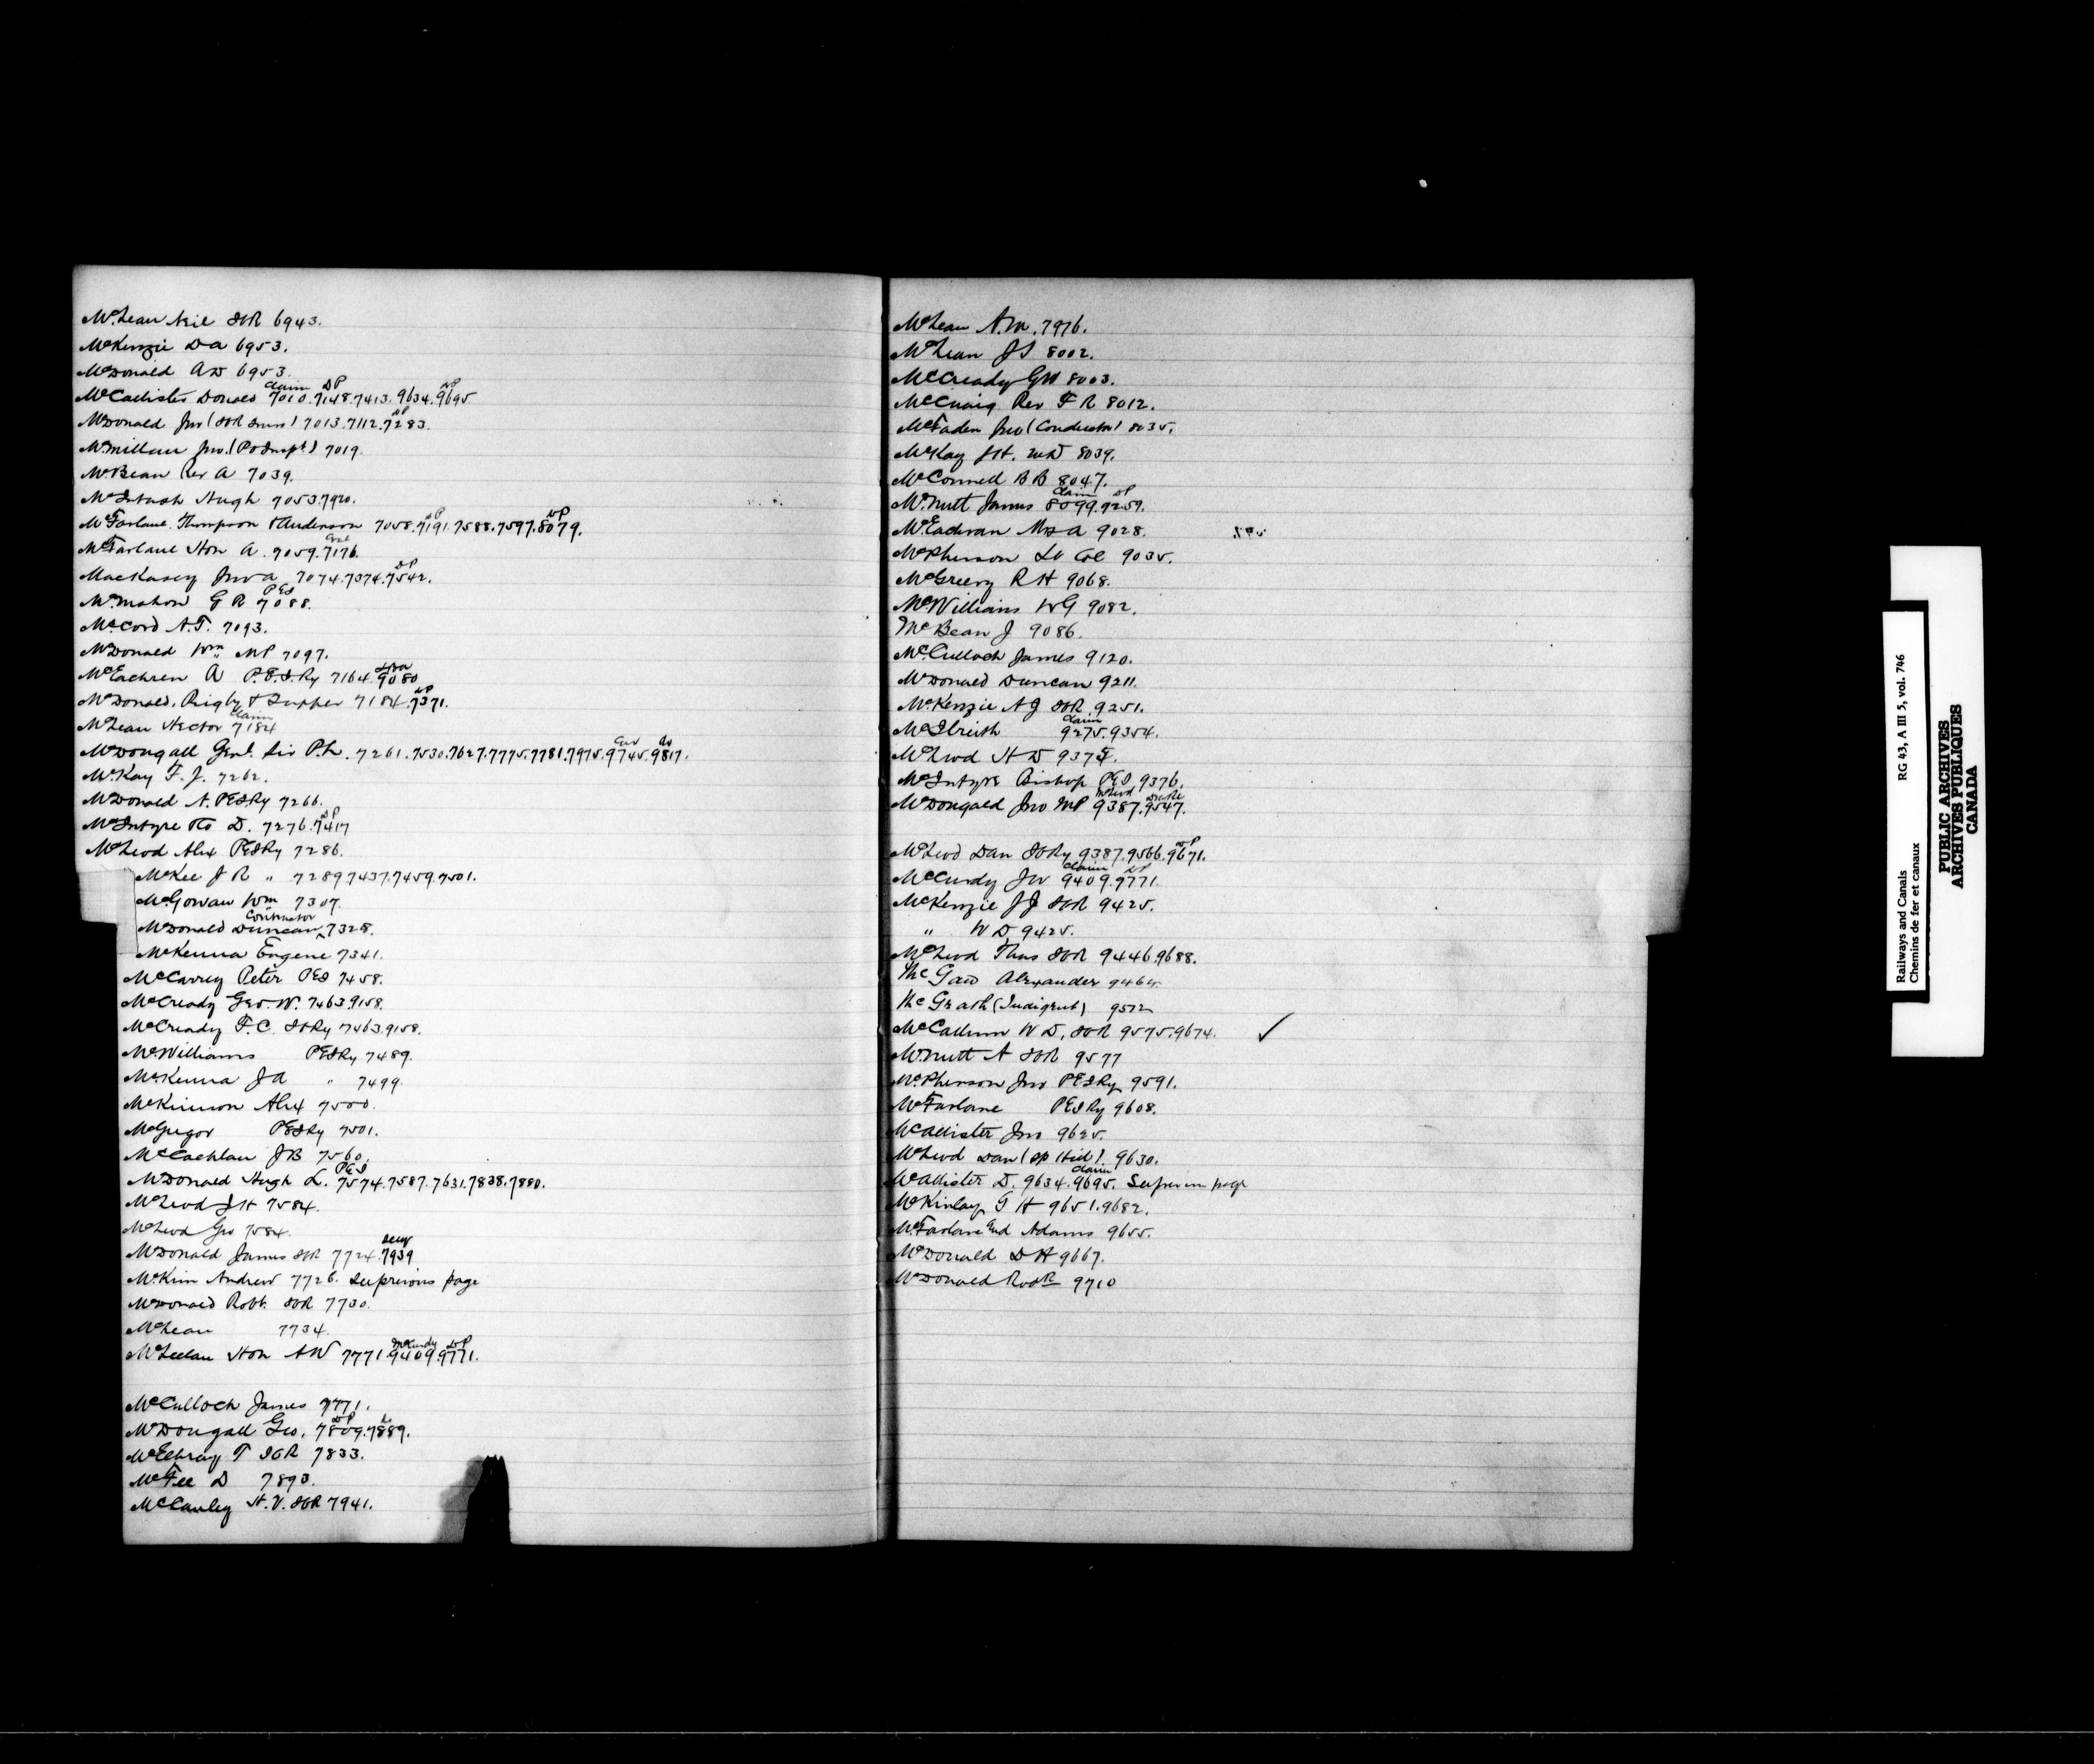 McLean Neil ICR 6943.
McKenzie DA 6953.
McDonald AD 6953.
McCallister Donald 7010.7148.7413.9634.9695
Claim DP DP
McDonald Jno (ICR) 7013.7112.7283.
DP
McMillan Jno. (PO Inspt.) 7019.
McBean Rev A 7039.
McIntosh Hugh 7053.7920.
McFarlane, Thompson & Anderson 7058.7191.7588.7597.8079.
DP DP
McFarlane Hon A. 7059.7176.
MacKasey Jno A 7074.7374.7542.
DP
McMahon G R 7088.
PEI
McCord A.T. 7093.
McDonald Wm MP 7097.
McEachren A P.E.I.Ry 7164.9080
McDonald, Rigby & Tupper 7184.7371.
DP
McLean Hector 7184
Claim
McDougall Genl. Sir P.L. 7261.7530.7627.7775.7781.7975.9745.9817.
McKay F. J. 7262.
McDonald A. PEIRy 7266.
McIntyre D. 7276.7417
DP
McLeod Alex PEIRy 7286.
McKee J R " 7289.7437.7459.7501.
McGowan Wm 7307.
McDonald Duncan 7328.
Contractor
McKenna Eugene 7341.
McCarrey Peter PEI 7458.
McCready Geo. W. 7463.9158.
McCready F.C. ICRy 7463.9158.
McWilliams PEIRy 7489.
McKenna JA " 7499.
McKinnon Alex 7500.
McGregor PEIRy 7501.
McCachlan JB 7560.
McDonald Hugh L. 7574.7587.7631.7838.7880.
PEI
McLeod J H 7584.
McLeod Geo 7584.
McDonald James ICR 7724.7939
McKim Andrew 7726. See previous page
McDonald Robt. ICR 7730.
McLean 7734.
McLellan Hon AW 7771.9409.9771.
McCurdy DP
McCulloch James 7771.
McDougall Geo. 7809.7889.
DP Do
McElhray T ICR 7833.
McFee D 7893.
McCauley H.V. ICR 7941.
McLean A.M. 7976.
McLean JS 8002.
McCready GW 8003.
McCuaig Rev F R 8012.
McFaden Jno (Conductor) 8035.
McKay JH. MD 8039.
McConnell BB 8047.
McNutt James 8099.9259.
Claim DP
McEachran Mrs A 9028.
McPherson Lt Col 9035.
McGreevy R H 9068.
McWilliams WG 9082.
McBean J 9086.
McCulloch James 9120.
McDonald Duncan 9211.
McKenzie AJ ICR 9251.
McIlreith 9275.9354.
Claim
McLeod H D 9375.
McIntyre Bishop PEI 9376.
McDougald Jno MP 9387.9547.
McLeod
McLeod Dan ICRy 9387.9566.9671.
DP
McCurdy JW 9409.9771.
Claim DP
McKenzie JJ ICR 9425.
" W D 9425.
McLeod Thos ICR 9446.9688.
McGaw Alexander 9464
McGrath (Indigent) 9572
McCallum W D. ICR 9575.9674. ✓
McNutt A ICR 9577
McPherson Jno PEIRy 9591.
McFarlane PEIRy 9608.
McAllister Jno 9625.
McLeod Dan (Sp Hill) 9630.
McAllister D. 9634.9695. See previous page
Claim
McKinlay G H 9651.9682.
McFarlane and Adams 9655.
McDonald D H 9667.
McDonald Rodk 9710
Railways and Canals RG 43, A III 5, vol. 746
Chemins de fer et canaux
PUBLIC ARCHIVES
ARCHIVES PUBLIQUES
CANADA